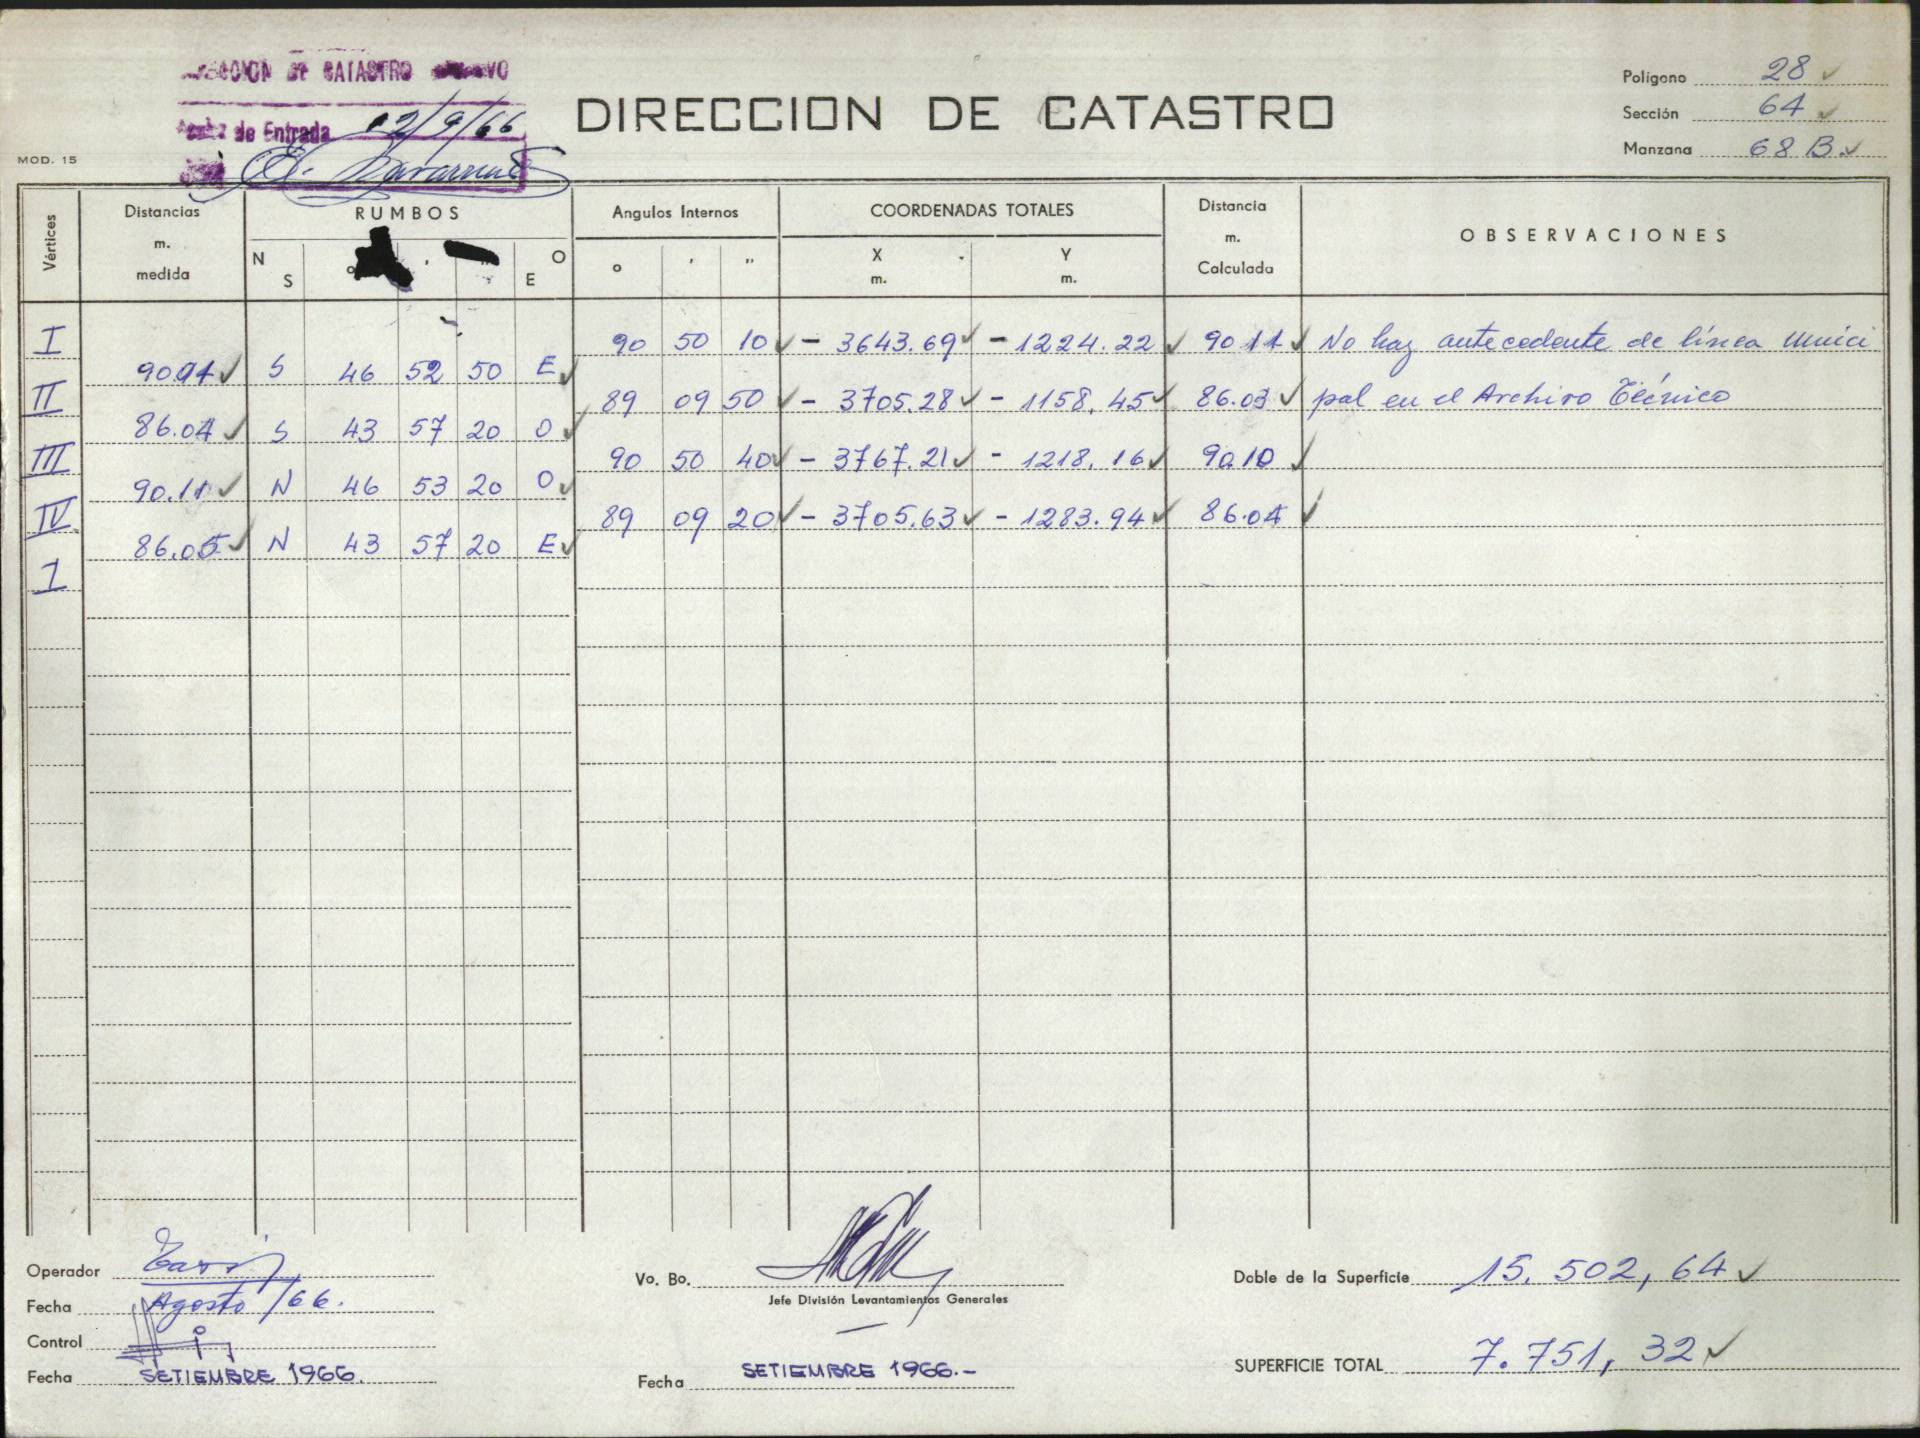 DE CATASTRO
de Entrada 12/9/66
DIRECCION DE CATASTRO
Polígono 28
Sección 64
Manzana 68 B
MOD. 15
Vértices
Distancias
m.
medida
RUMBOS
N
S
°
'
O
E
Angulos Internos
° ' "
COORDENADAS TOTALES
X
m.
Y
m.
Distancia
m.
Calculada
OBSERVACIONES
I 90 50 10 - 3643.69 - 1224.22 90.11 No hay antecedente de línea Munici
90.11 S 46 52 50 E
II 89 09 50 - 3705.28 - 1158.45 86.03 pal en el Archivo Técnico
86.04 S 43 57 20 O
III 90 50 40 - 3767.21 - 1218.16 90.10
90.11 N 46 53 20 O
IV 89 09 20 - 3705.63 - 1283.94 86.04
86.05 N 43 57 20 E
I
Operador
Fecha Agosto/66.
Control
Fecha SETIEMBRE 1966.
Vo. Bo.
Jefe División Levantamientos Generales
Fecha SETIEMBRE 1966.-
Doble de la Superficie 15.502,64
SUPERFICIE TOTAL 7.751,32